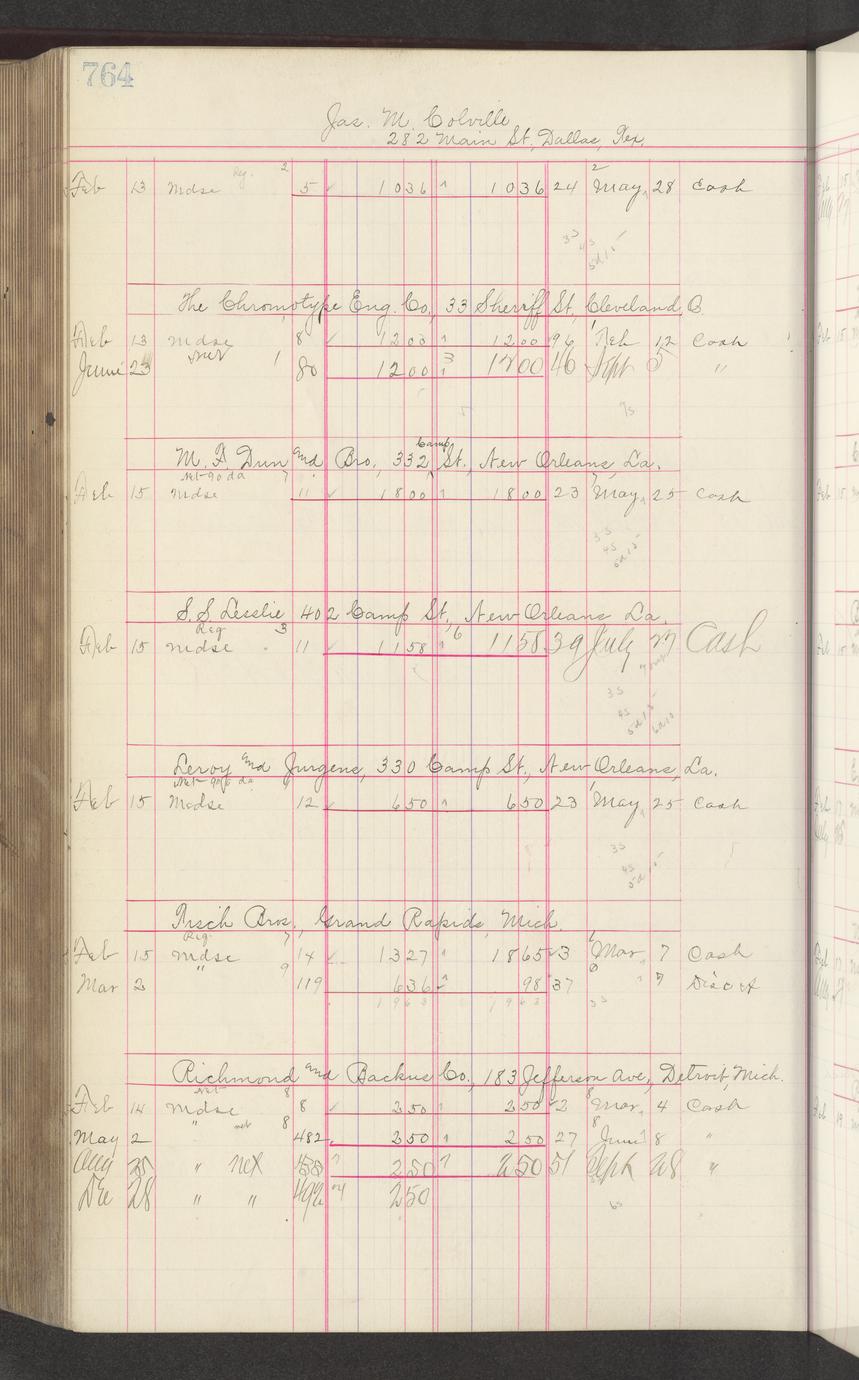 764
Jas. M. Colville
282 Main St., Dallas, Tex.
Reg. 2 2
Feb 13 Mdse 5 1036 1036 24 May 28 Cash
3s
4s
5d15
The Chromotype Eng. Co., 33 Sheriff St., Cleveland, O.
Feb 13 Mdse 8 1200 1200 96 Feb 12 Cash
June 23 net 1 80 1200 3 1200 46 Sept 5 "
7s
Camp
M. F. Dunn and Bro., 332 St., New Orleans, La.
Net 90 da 7
Feb 15 Mdse 11 1800 1800 23 May 25 Cash
3s
4s
5d15
S. S. Lesslie 402 Camp St., New Orleans La.
Reg 3 6
Feb 15 Mdse 11 1158 1158 39 July 27 Cash
3s
4s
5d15 6d10
Leroy and Jurgens, 330 Camp St., New Orleans, La.
Net 90 da
Feb 15 Mdse 12 650 650 23 May 25 Cash
3s
4s
5d15
Tisch Bros., Grand Rapids, Mich.
Reg. 7
Feb 15 Mdse 14 1327 1865 3 Mar. 7 Cash
Mar 2 " 9 119 636 98 37 " 7 Disct
1963 1963 3s
Richmond and Backus Co., 183 Jefferson Ave., Detroit, Mich.
Net 8 8
Feb 14 Mdse 8 250 250 2 Mar. 4 Cash
May 2 " net 8 482 250 250 27 June 8 "
Aug 25 " net 155 250 250 51 Sept 28 "
Dec 28 " " 492 250
6s